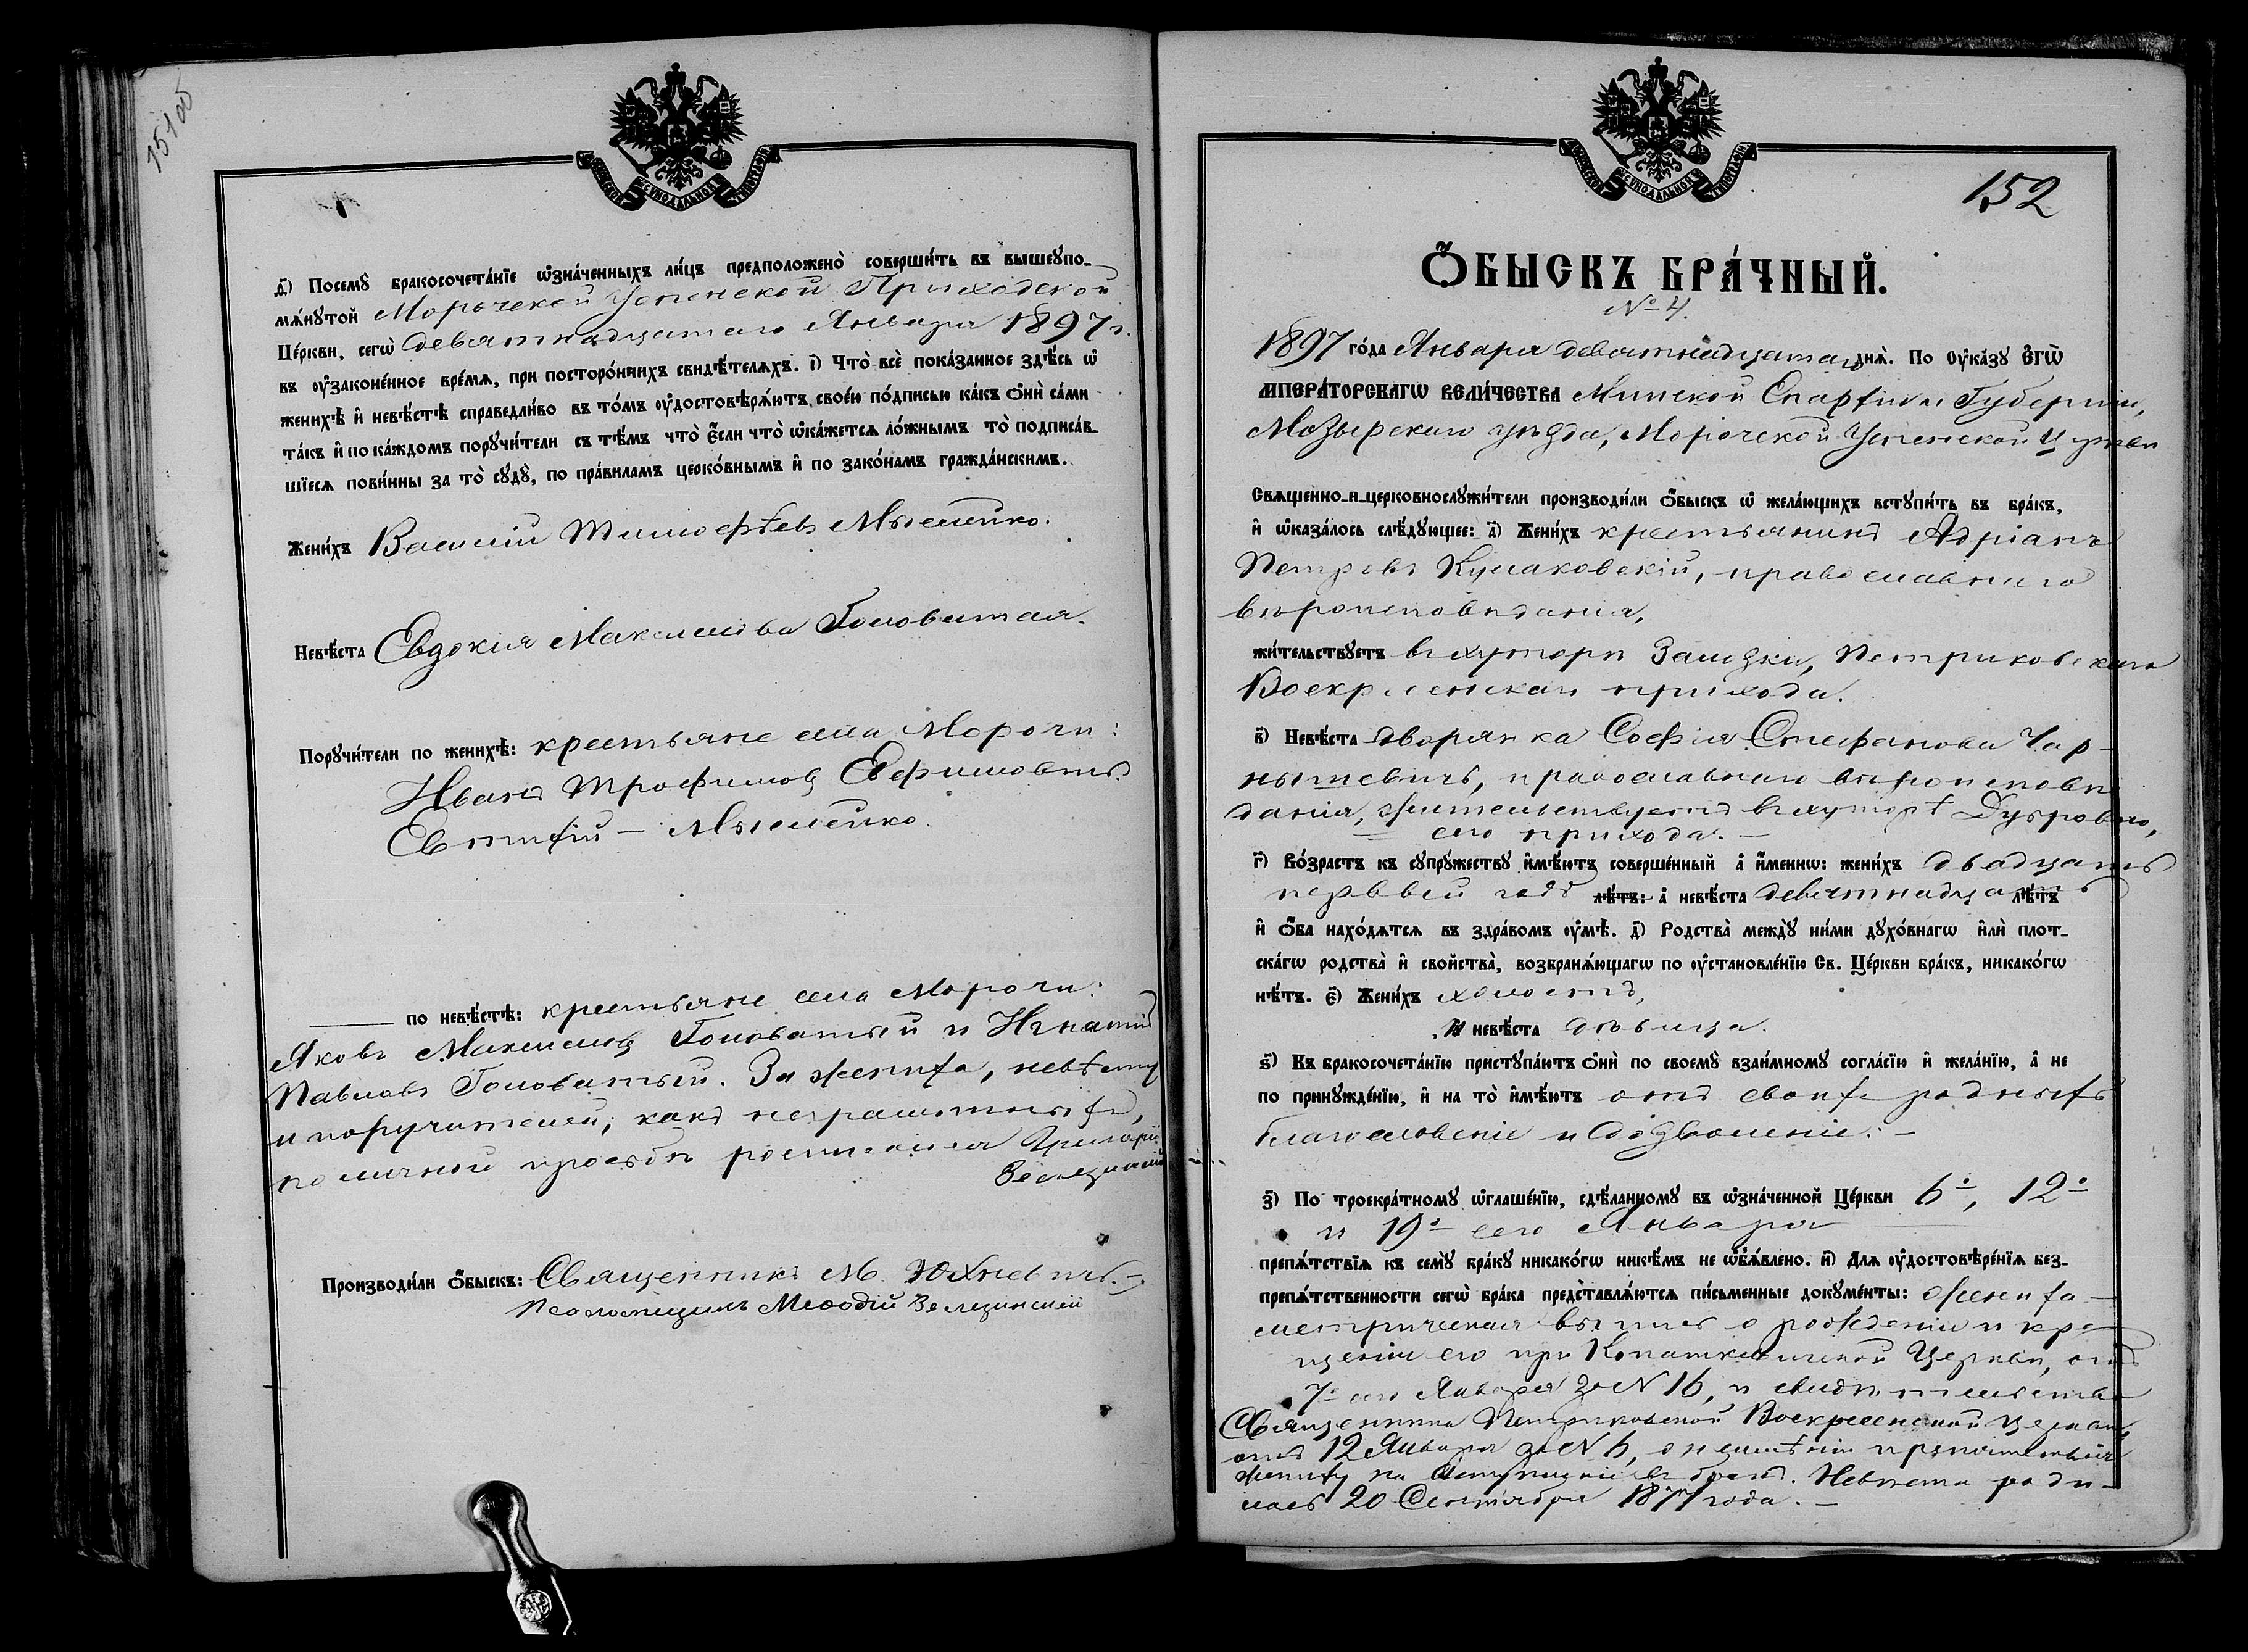 151 об
МОСКОВСКОЙ СУНОДАЛЬНОЙ ТИПОГРАФІИ
д҃) Посемꙋ̀ бракосочета́нїе ѡ҆зна́ченныхъ ли́цъ предположено̀ соверши́ть въ вышеꙋпо-
мѧ́нꙋтой Морочской Успенской Приходской
Це́ркви, сегѡ̀ девятнадцатаго Января 1897 г.
въ ᲂу҆зако́ненное вре́мѧ, при посторо́ннихъ свидѣ́телѧхъ. і҃) Что̀ всѐ пока́занное здѣ́сь ѡ҆
женихѣ̀ и҆ невѣ́стѣ справедли́во въ то́мъ ᲂу҆достовѣрѧ́ютъ своею по́дписью ка́къ ѻ҆нѝ са́ми
та́къ и҆ по ка́ждомъ порꙋчи́тели съ тѣ́мъ что̀ є҆́сли что̀ ѡ҆ка́жетсѧ ло́жнымъ то̀ подписа́в-
шїесѧ пови́нны за то̀ сꙋдꙋ̀, по пра́виламъ церко́внымъ и҆ по зако́намъ гражда́нскимъ.
Жени́хъ Василій Тимофѣевъ Мысливко.
Невѣ́ста Евдокія Максимова Головатая.
Порꙋчи́тели по женихѣ̀: крестьяне села Морочи:
Иванъ Трофимовъ Ефимовичъ
Евтихій — Мысливко.
по невѣ́стѣ: крестьяне села Морочи:
Яковъ Максимовъ Головатый и Игнатій
Павловъ Головатый. За жениха, невѣсту
и поручителей, какъ неграмотныхъ,
по личной просьбѣ росписался Григорій
Производи́ли ѻ҆́быскъ: Священникъ М. Юхневичъ. —
Псаломщикъ Меѳодій
МОСКОВСКОЙ СУНОДАЛЬНОЙ ТИПОГРАФІИ
152
Ѻ҆́БЫСКЪ БРА́ЧНЫЙ.
№ 4.
1897 го́да Января девятнадцатаго днѧ̀. По ᲂу҆ка́зꙋ Є҆гѡ̀
И҆МПЕРА́ТОРСКАГѠ ВЕЛИ́ЧЕСТВА Минской Епархіи и Губерніи,
Мозырскаго уѣзда, Морочской Успенской Церкви
Свѧщенно-и-церковнослꙋжи́тели производи́ли ѻ҆́быскъ ѡ҆ жела́ющихъ встꙋпи́ть въ бра́къ,
и҆ ѡ҆каза́лось слѣ́дꙋющее: а҃) Жени́хъ крестьянинъ Адріанъ
Петровъ Кулаковскій, православнаго
вѣроисповѣданія,
жи́тельствꙋетъ въ хуторѣ Залозки, Петриковскаго
Воскресенскаго прихода.
в҃) Невѣ́ста дворянка Софія Стефанова Чар-
нышевичъ, православнаго вѣроисповѣ-
данія, жительствуетъ въ хуторѣ Дуброво,
сего прихода. —
г҃) Во́зрастъ къ сꙋпрꙋ́жествꙋ и҆мѣ́ютъ соверше́нный а҆̀ и҆́меннѡ: жени́хъ двадцать
первый годъ лѣ́тъ: а҆̀ невѣ́ста девятнадцать лѣ́тъ
и҆ ѻ҆́ба нахо́дѧтсѧ въ здра́вомъ ᲂу҆мѣ̀. д҃) Родства̀ междꙋ̀ ни́ми дꙋхо́внагѡ и҆лѝ плот-
ска́гѡ родства̀ и҆ свойства̀, возбранѧ́ющагѡ по ᲂу҆становле́нїю Св. Це́ркви бра́къ, никако́гѡ
нѣ́тъ. є҃) Жени́хъ холостъ,
И҆ невѣ́ста дѣвица.
ѕ҃) Къ бракосочета́нїю пристꙋпа́ютъ ѻ҆нѝ по своемꙋ̀ взаи́мномꙋ согла́сїю и҆ жела́нїю, а҆̀ не
по принꙋжде́нїю, и҆ на то̀ и҆мѣ́ютъ отъ своихъ родныхъ
благословеніе и дозволеніе. —
з҃) По троекра́тномꙋ ѡ҆глаше́нїю, сдѣ́ланномꙋ въ ѡ҆зна́ченной Це́ркви 6о, 12о
и 19о сего Января
препѧ́тствїѧ къ семꙋ̀ бра́кꙋ никако́гѡ никѣ́мъ не ѡ҆б̾ѧ́влено. и҃) Длѧ ᲂу҆достовѣре́нїѧ без-
препѧ́тственности сегѡ̀ бра́ка представлѧ́ютсѧ пи́сьменные докꙋме́нты: жениха —
метрическая выпись о рожденіи и кре-
щеніи его при Копаткевичской Церкви, отъ
7о сего Января за № 16, и свидѣтельство
Священника Петриковской Воскресенской церкви
отъ 12 Января за № 6, о неимѣніи препятствія
жениху на вступленіе въ бракъ. Невѣста роди-
лась 20 Сентября 1877 года. —